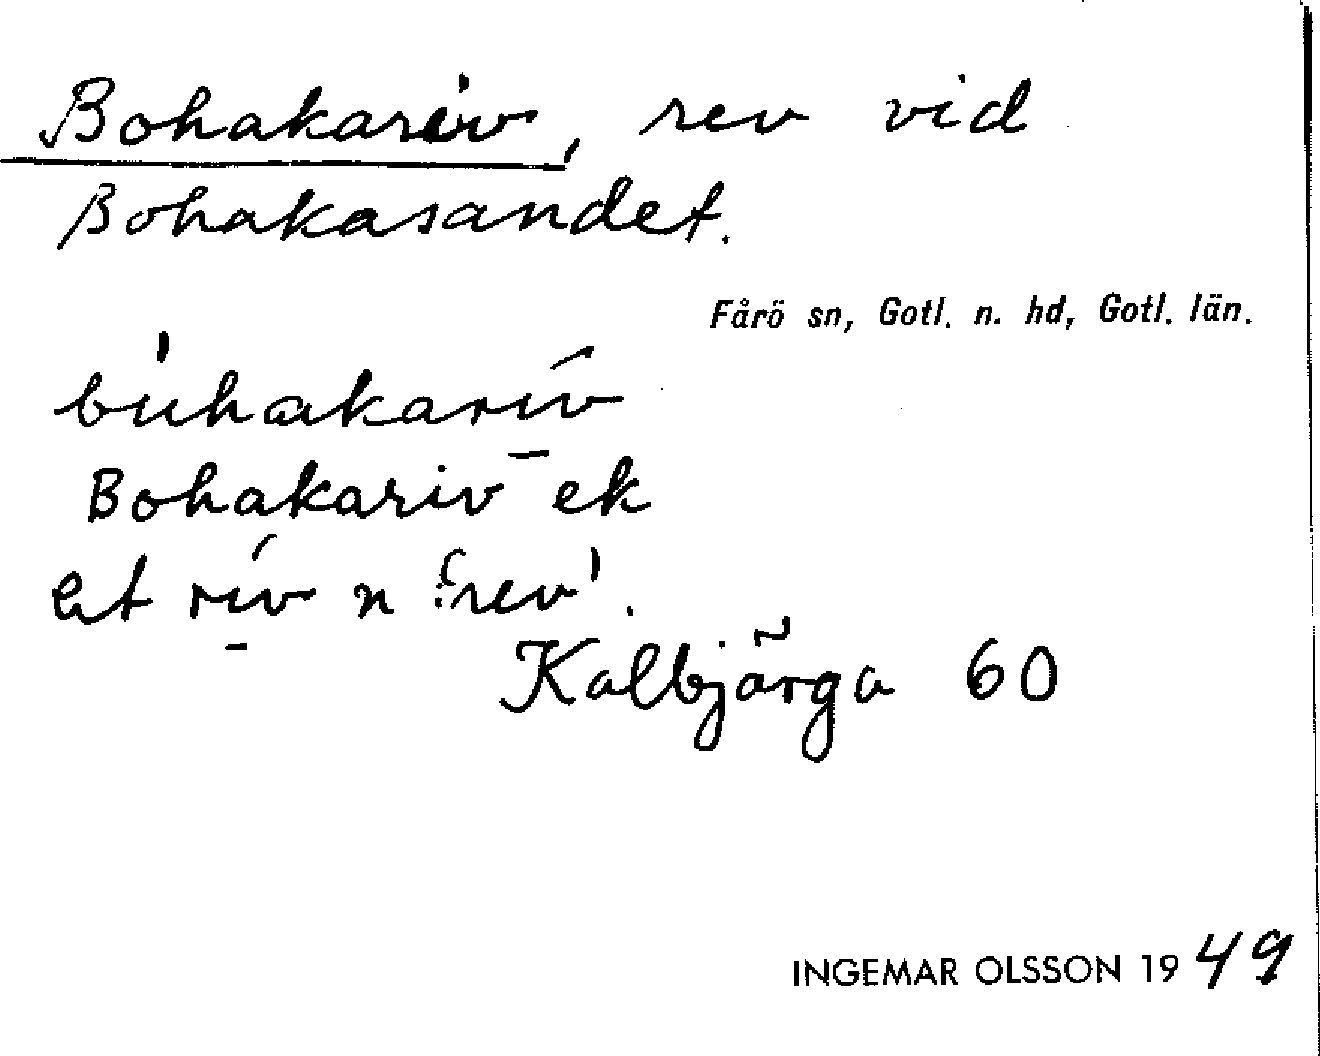 Bohakariv, rev vid
Bohakasandet.
Fårö sn, Gotl. n. hd, Gotl. län.
búhakarív
Bohakariv ek
et rív n 'rev'.
Kalbjärga 60
INGEMAR OLSSON 1949